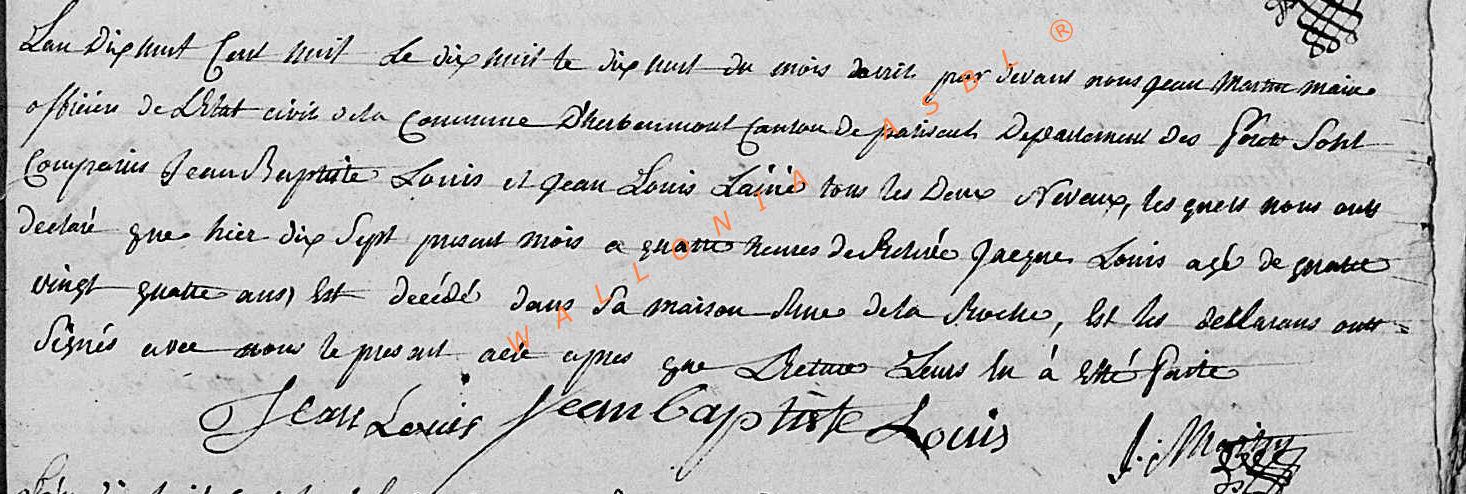 Lan Dix huit Cent huit le dix huit le dix huit du mois davril par devant nous jean Martin maire
officier de L'Etat civil de la Commune D'herbeumont Canton de paliseul Departement des foret Sont
Comparus Jean Baptiste Louis et jean Louis Lainé tous les deux Neveux, les quels nous ont
declaré que hier dix Sept present mois a quatre heures de Relevée Jacque Louis agé de quatre
vingt quatre ans, Est decédé dans Sa maison Rue de la Roche, Est les declarans ont
Signés avec nous le present acte apres que Lecture Leurs En à Etté faite
Jean Louis Jean baptiste Louis
J: Martin
WALLONIA ASBL ®